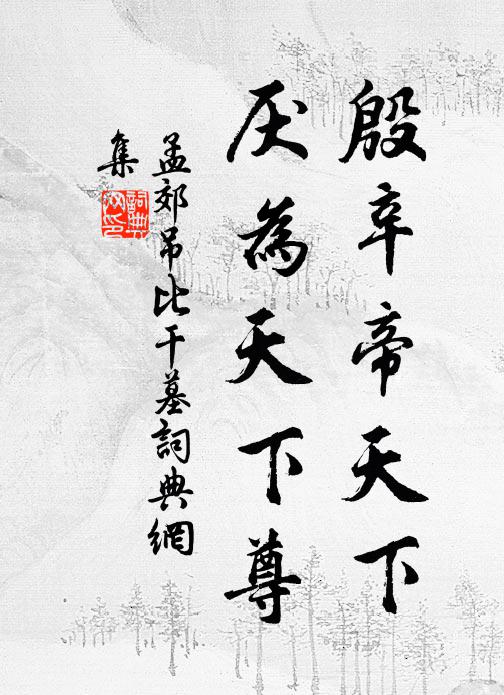 殷辛帝天下
厌為天下尊
孟郊吊比干墓詞典網
集
詞典
网印